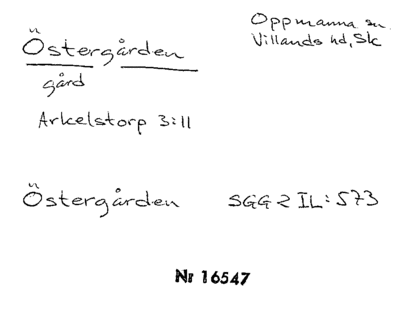 Östergården
Oppmanna sn
Villands hd, Sk
gård
Arkelstorp 3:11
Östergården SGG 2 IL:573
Nr 16547